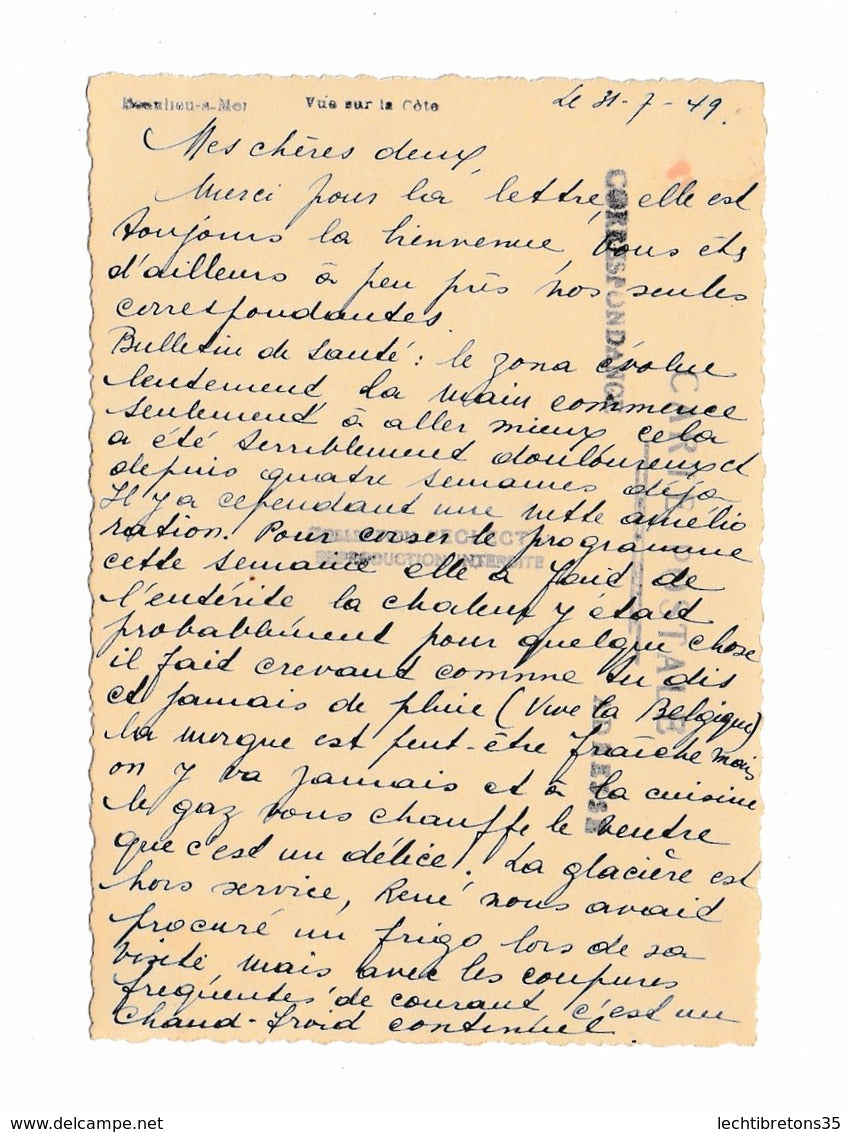 Beaulieu-s-Mer Vue sur la Côte
Le 31-7-49.
Mes chères deux,
Merci pour la lettre, elle est
toujours la bienvenue, vous êts
d'ailleurs à peu près nos seules
correspondantes.
Bulletin de santé : le zona évolue
lentement, la main commence
seulement à aller mieux, cela
a été terriblement douloureux et
depuis quatre semaines déjà
Il y a cependant une nette amélio
ration. Pour corser le programme
cette semaine elle a fait de
l'entérite la chaleur y était
probablement pour quelque chose
il fait crevant comme tu dis
et jamais de pluie (Vive la Belgique)
la morgue est peut-être fraîche mais
on y va jamais et à la cuisine
le gaz vous chauffe le ventre
que c'est un délice. La glacière est
hors service, René nous avait
procuré un frigo lors de sa
visite mais avec les coupures
fréquentes de courant c'est un
chaud-froid continuel.
CORRESPONDANCE
CARTE POSTALE
ADRESSE
REPRODUCTION INTERDITE
lechtibretons35